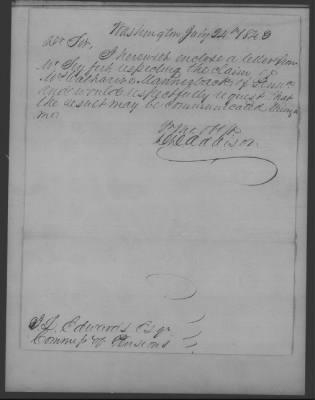 Washington July 24th 1843
Dr Sir,
I herewith enclose a letter from
Mr Seyfert respecting the claim of
Mrs Catharine Mannerback, of Penna
and would respectfully request that
the result may be communicated through
me.
Addison
J. L. Edwards Esqr
Commr of Pensions